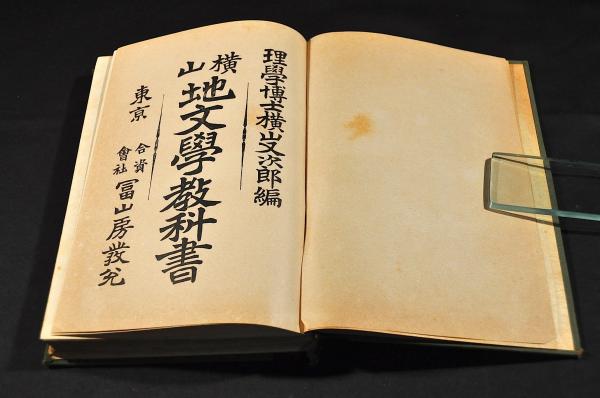 理學博士橫山又次郎編
橫山
地文學教科書
東京
合資
會社
冨山房發兌